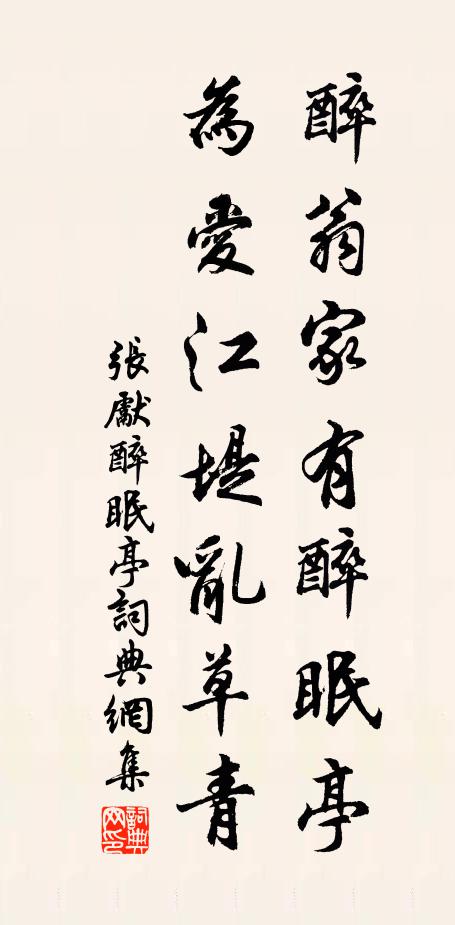 醉翁家有醉眠亭
為愛江堤亂草青
張獻醉眠亭詞典網集
詞典网印